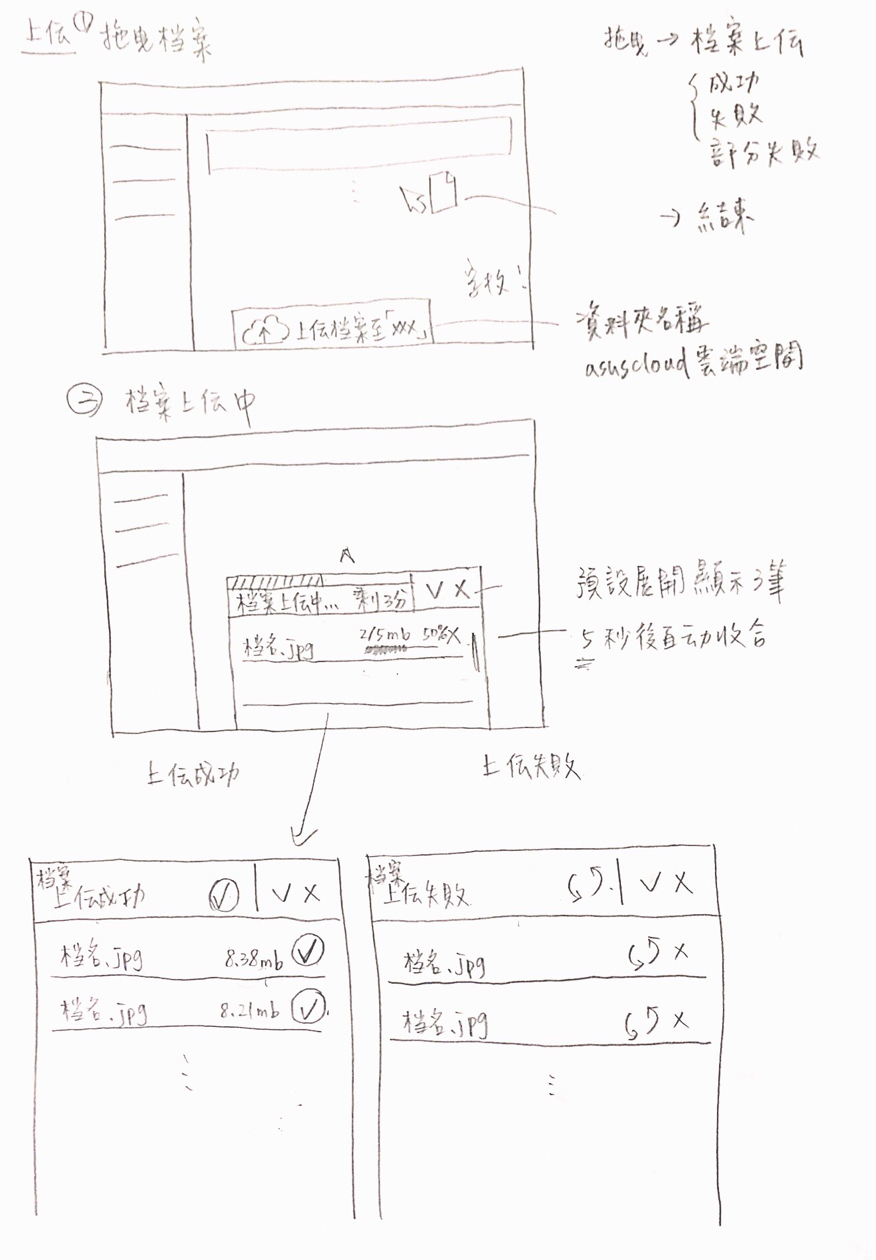 上伝① 拖曳档案
拖曳→档案上伝
成功
失敗
部分失敗
→ 結束
上伝档案至「xxx」
資料夾名稱
asuscloud 雲端空間
② 档案上伝中
档案上伝中... 剩3分 V X
档名.jpg 2/5mb 50% X
預設展開顯示3筆
5秒後自动收合
上伝成功
上伝失敗
档案
上伝成功 V X
档名.jpg 8.38mb
档名.jpg 8.21mb
档案
上伝失敗 V X
档名.jpg X
档名.jpg X